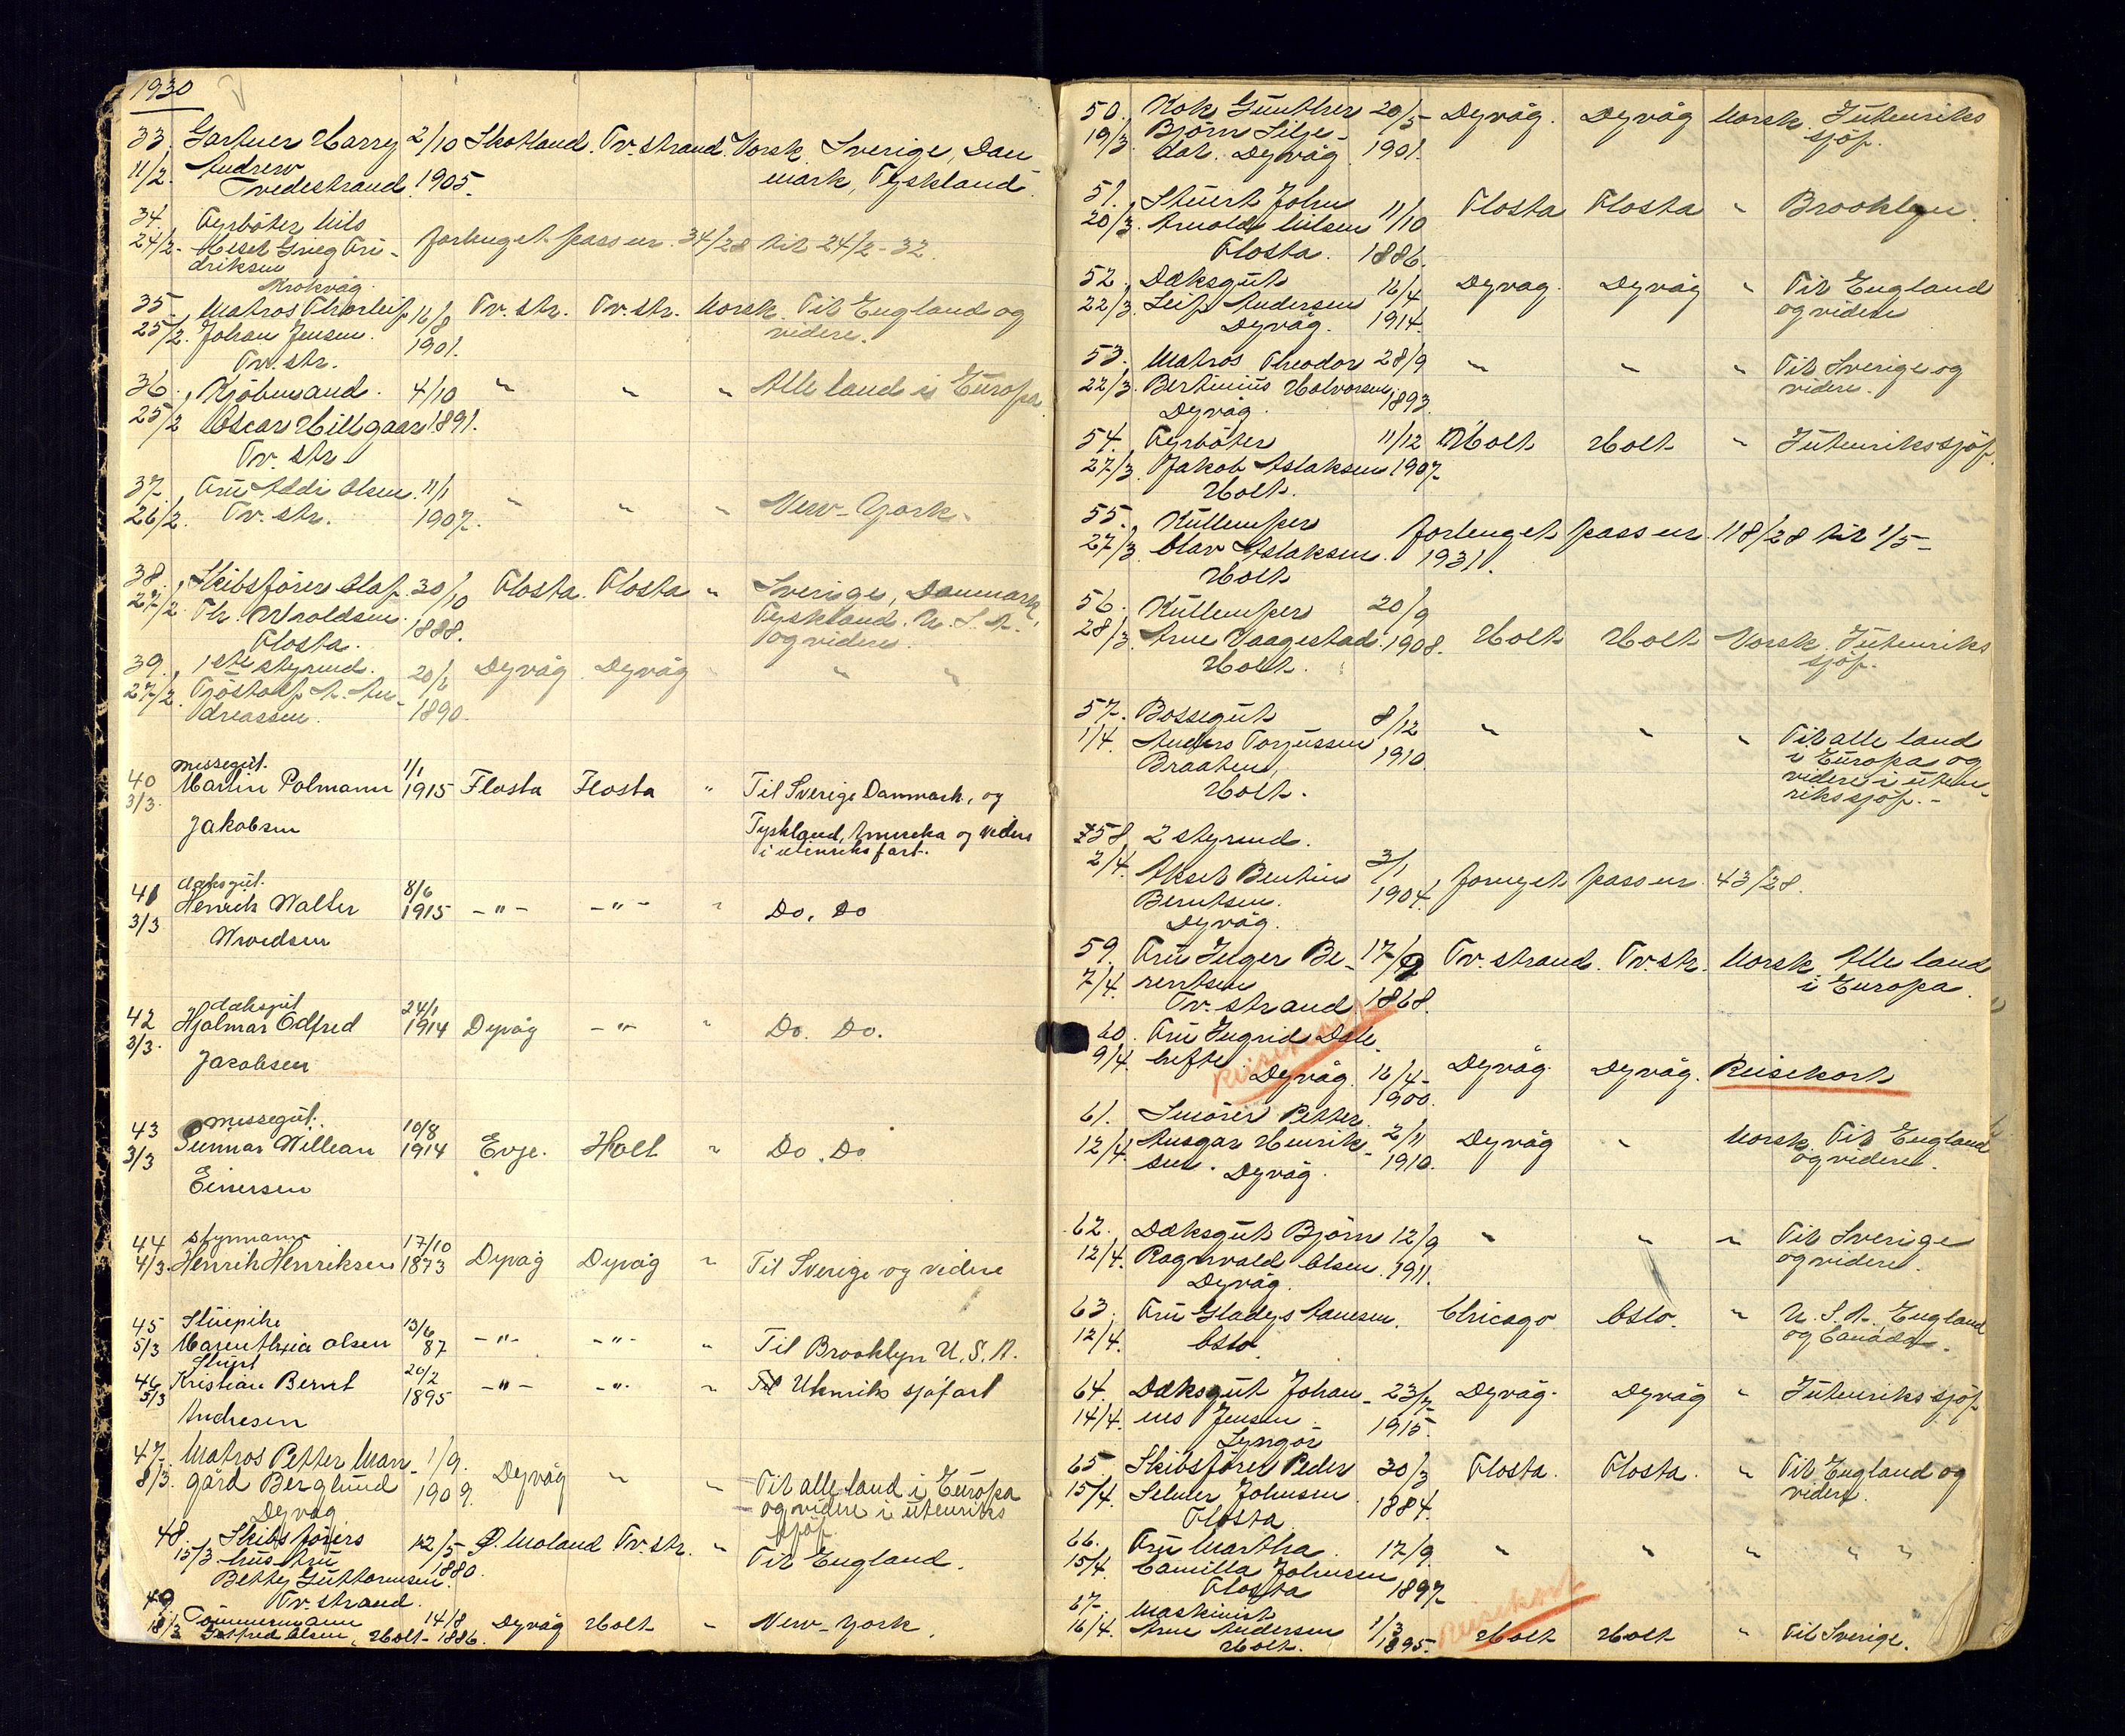 1930
33. Gartner Harry 2/10 Skotland. Tv. strand. Norsk. Sverige, Dan
11/2. Andrew 1905. mark, Tyskland
Tvedestrand
34. Fyrböter Nils
24/2. Aksel Grieg Fri- forlenget pass nr. 34/28 til 24/2-32.
driksen
Krokvåg.
35. Matros Thorleif 16/8 Tv. str. Tv. str. Norsk. Til England og
25/2. Johan Jensen. 1901. videre.
Tv. str.
36. Kjöbmand. 4/10 " " " Alle land i Europa
25/2 Oscar Hillgaar 1891.
Tv. str
37. Fru Addi Olsen. 11/1 " " " New-York.
26/2. Tv. str. 1907.
38. Skibsförer Olaf 30/10 Flosta. Flosta " Sverige, Danmark,
27/2 Th. Aroldsen. 1888. Tyskland. U. S. A.
Flosta. og videre.
39. 1ste styrmd. 20/6 Dyvåg Dyvåg " " "
27/2. Tjöstolf A. An- 1890.
dreassen.
40 messegut. 1/1
3/3. Martin Polmann 1915 Flosta Flosta " Til Sverige Danmark, og
Jakobsen Tyskland, Amerika og videre
i utenriks fart.
41 dæksgut. 8/6
3/3 Henrik Walter 1915 -"- -"- " Do, Do
Arvedsen
42 dæksgut 24/1
3/3. Hjalmar Odfred 1914 Dyvåg -"- " Do. Do.
Jacobsen
43 messegut. 10/8
3/3 Gunnar Willean 1914 Evje. Holt " Do. Do
Einersen
44 Styrmann 17/10
4/3. Henrik Henriksen 1873 Dyvåg Dyvåg " Til Sverige og videre
45 Stuepike 13/6
5/3 Maren Olsen 87 -"- -"- " Til Brooklyn U. S. A.
46 Stuert 20/2
5/3 Kristian Bernt 1895 -"- -"- " Til Utenriks sjöfart
Andresen
47. Matros Petter Marr- 1/9. Dyvåg " " Til alle land i Europa
8/3. gård Berglund 1909. og videre i utenriks
Dyvåg sjöf.
48. Skibsförers 12/5 Ø. Moland Tv. str. " Til England.
15/3 hustru 1880.
Betty Guttormsen.
Tv. strand.
49. Tömmermann 14/8 Dyvåg Holt " New-York.
18/3 Olsen, Holt 1886.
50. Kok Günther 20/5 Dyvåg. Dyvåg Norsk. Jutenriks
19/3 Björn Lilje- 1901. sjöf.
dal. Dyvåg
51. Stuert John 11/10 Flosta Flosta " Brooklyn.
20/3. Arnold Nilsen 1886.
Flosta.
52. Dæksgut 16/4 Dyvåg. Dyvåg " Til England
22/3. Leif Andersen 1914. og videre
Dyvåg.
53. Matros Theodor 28/9 " " " Til Sverige og
22/3. Bertinius Halvorsen 1893. videre.
Dyvåg.
54. Fyrböter 11/12 Holt Holt " Jutenrikssjöf.
27/3. Jakob Aslaksen 1907.
Holt.
55. Kullemper forlenget pass nr. 118/28 til 1/5-
27/3. Olav Aslaksen. 1931.
Holt
56. Kullemper 20/9
28/3. Arne Vaagestad. 1908. Holt Holt Norsk. Jutenriks
Holt. sjöf.
57. Bossegut 8/12 " " " Til alle land
1/4. Anders Torjussen 1910. i Europa og
Braaten, videre i uten-
Holt. rikssjöf.-
58. 2 styrmd.
2/4. Aksel Bentin 3/1 fornyet pass nr. 43/28.
Berntsen. 1904.
Dyvåg.
59. Fru Inger Be- 17/9 Tv. strand. Tv. str. Norsk. Alle land
7/4. rentsen 1868. i Europa.
Tv. strand
60. Fru Ingrid Dale
9/4. Dyvåg. 16/4- Dyvåg. Dyvåg. Reisekort
1900.
Reisekort
61. Smörer Petter
12/4. Ansgar Henrik- 2/11 Dyvåg " Norsk. Til England
sen. Dyvåg. 1910. og videre.
62. Dæksgut Björn 12/9 " " " Til Sverige
12/4. Ragnvald Olsen. 1911. og videre.
Dyvåg.
63. Fru Gladys Aanesen. Chicago Oslo. " U. S. A., England
12/4. Oslo. og Canada.
64. Dæksgut Johan- 23/7 Dyvåg. Dyvåg " Jutenrikssjöf.
14/4. nes Jensen 1915.
Lyngör
65. Skibsförer Peder 30/3 Flosta. Flosta. " Til England og
15/4. Selmer Johnsen 1884. videre.
Flosta.
66. Fru Martha 17/9. " " " " "
15/4. Camilla Johnsen 1897.
Flosta
67. Maskinist Reisekort
16/4. Arne Andersen 1/3 Holt Holt " Til Sverige.
Holt. 1895.